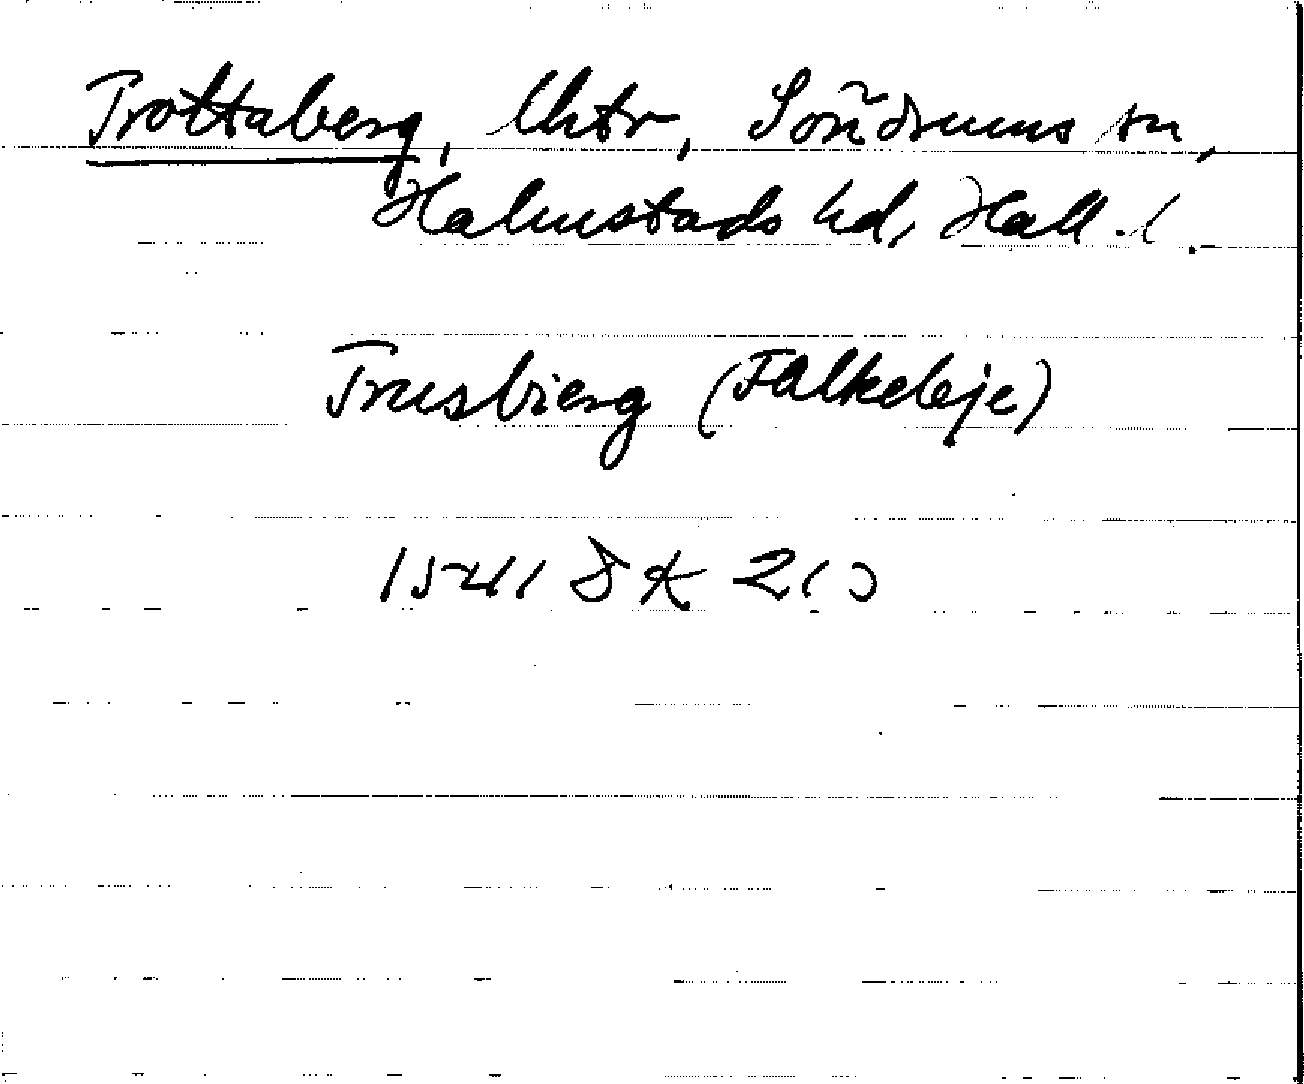 Trottaberg, Uktr, Söndrums sn,
Halmstads hd, Hall. l.
Trusbierg (Falkeleje)
1541 DK 2